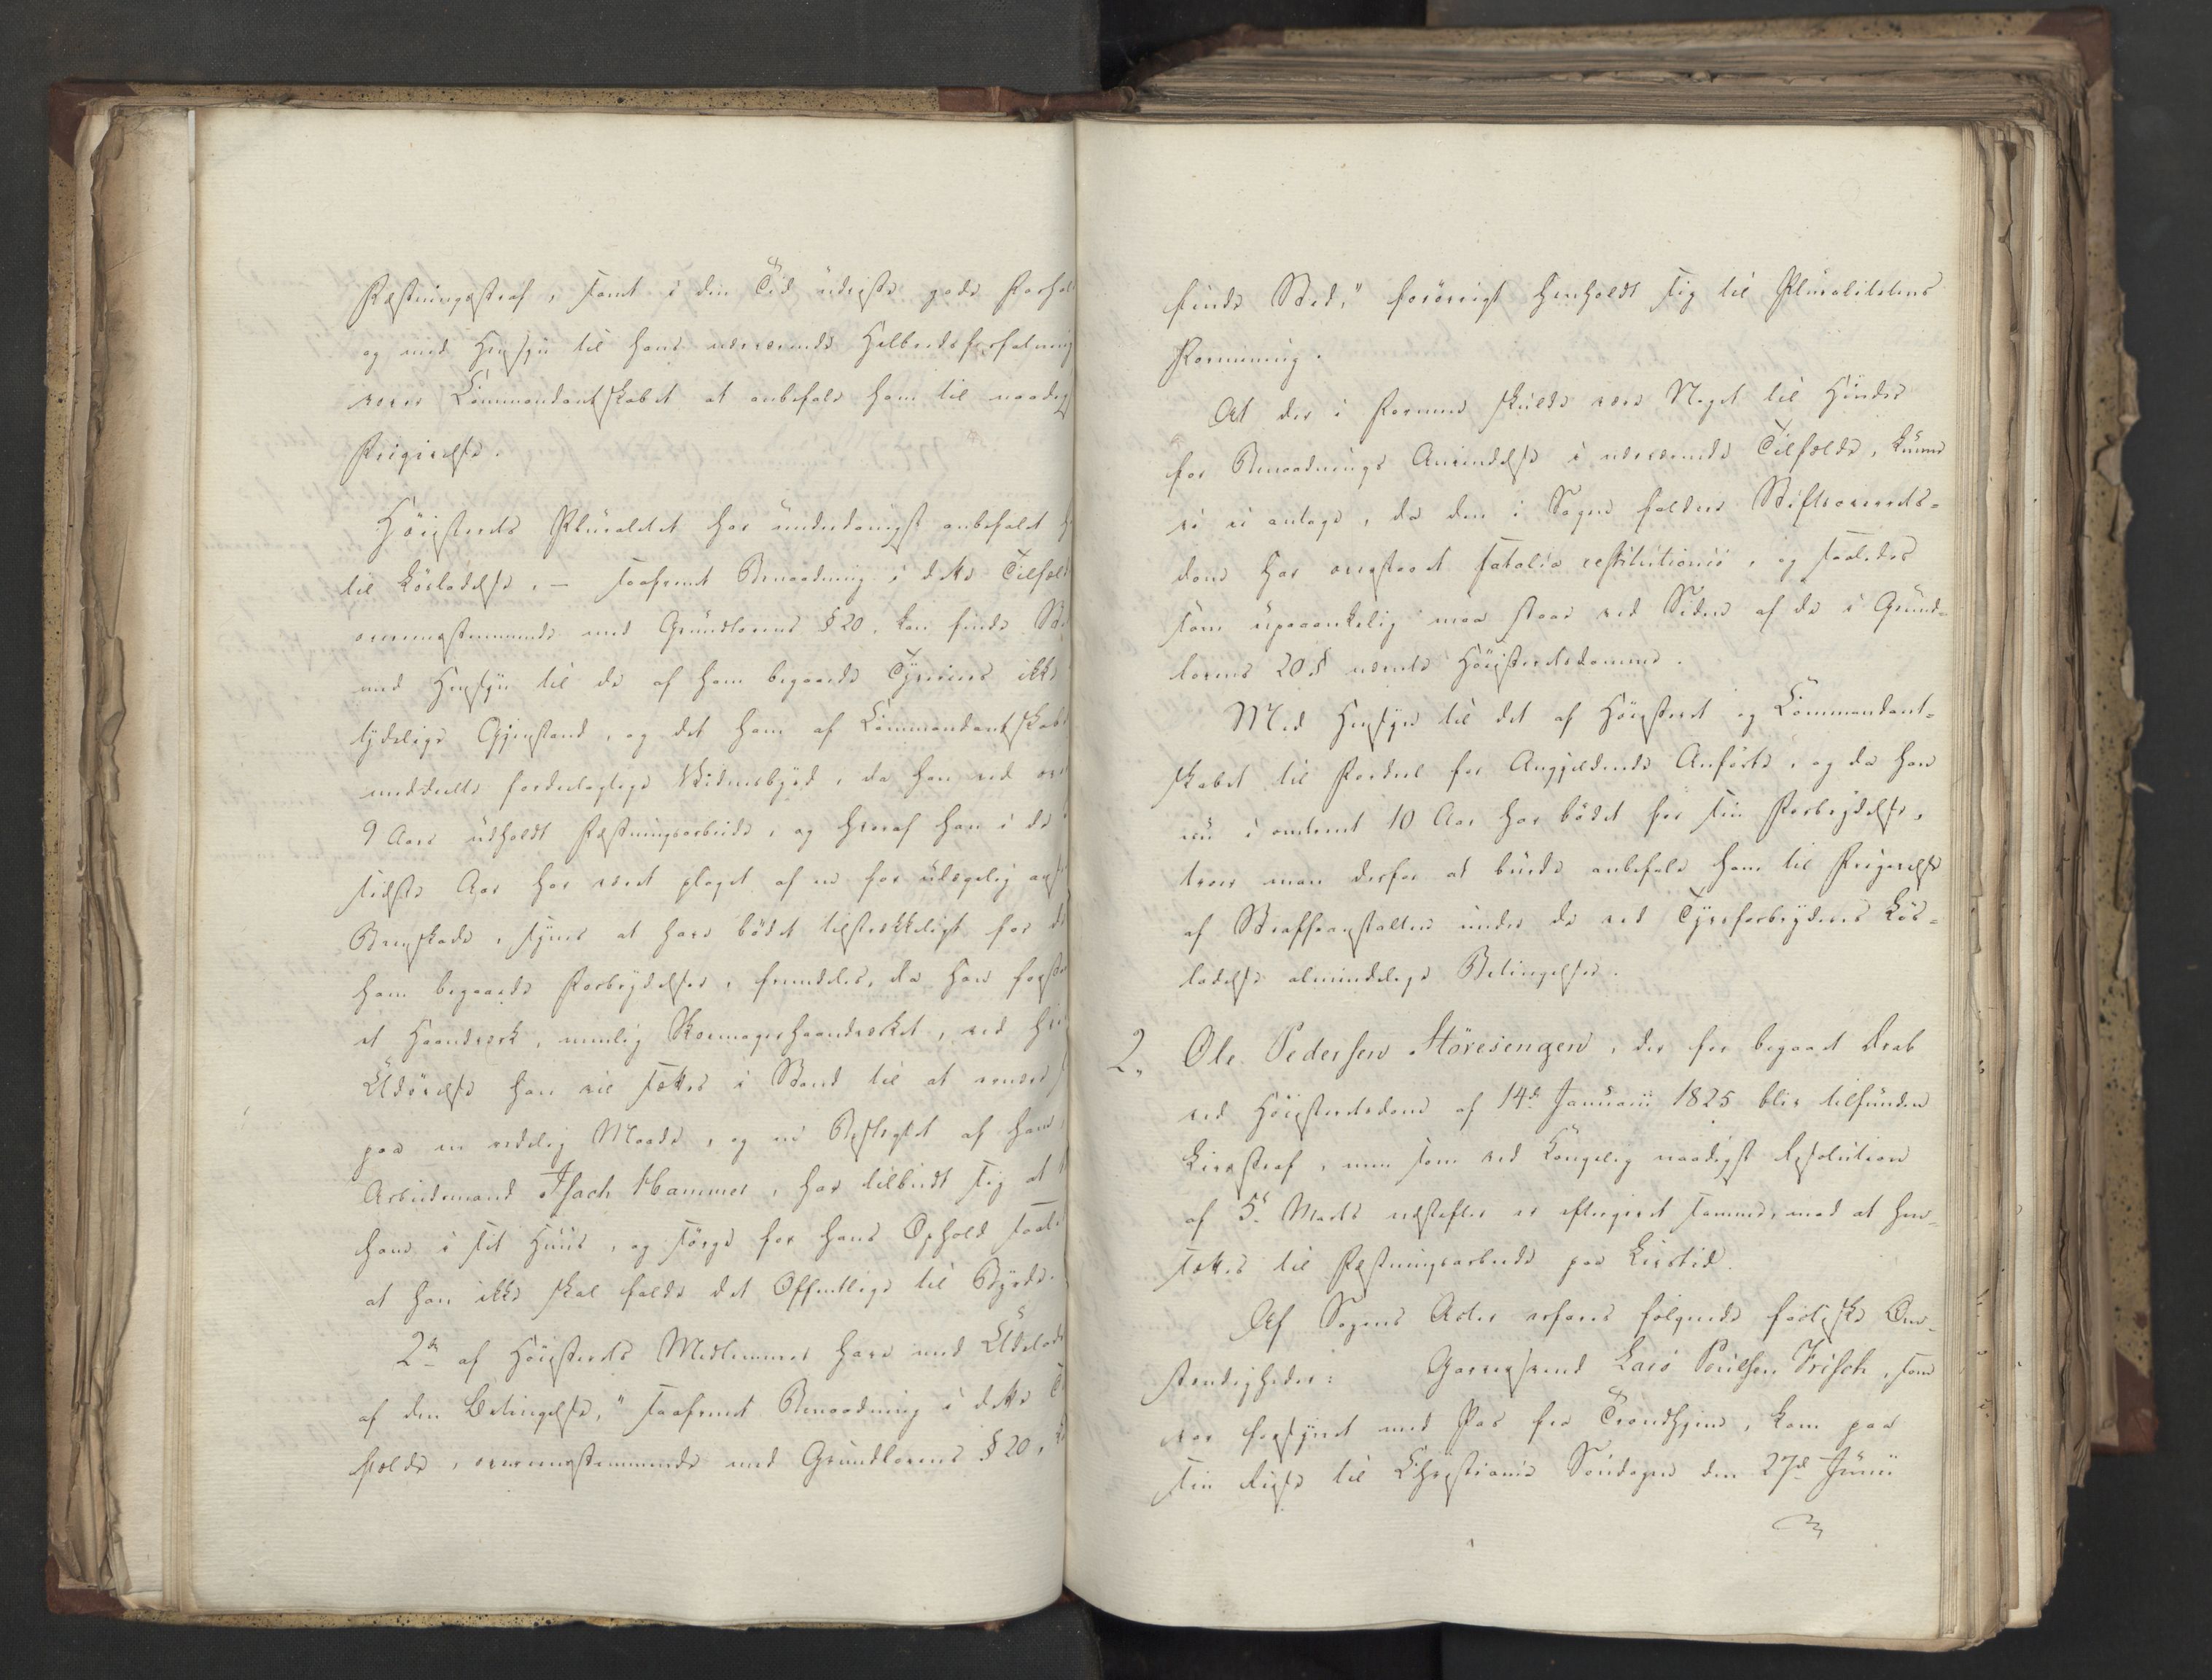 Fæstningsstraf, samt i den Tid udviiste gode Forhol
og med Hensyn til hans nærværende Helbredsforfatning
vover Commandantskabet at anbefale ham til naadig
Frigivelse.
Höiesterets Pluralitet har underdanigst anbefalet h
til Lösladelse, – saafremt Benaadning i dette Tilfæld
overensstemmende med Grundlovens § 20, kan finde Ste
med Hensyn til de af ham begaaede Tyveriers ikke
tydelige Gjenstand, og det ham af Commandantskabet
meddeelte fordeelagtige Vidnesbyrd, da han ved over
9 Aars udholdt Fæstningsarbeide, og hvoraf han i de
sidste Aar har været plaget af en for ulægelig anseet
Brokskade, synes at have bödet tilstrækkeligt for de
ham begaaede Forbrydelser, fremdeles, da han forstaa
et Haandværk, nemlig Skomagerhaandværket, ved hvis
Udövelse han vil sættes i Stand til at ernære s
paa en redelig Maade, og en Beslægtet af ham,
Arbeidsmand Isach Hammer, har tilbudt sig at
ham i sit Huus, og sörge for hans Ophold saale
at han ikke skal falde det Offentlige til Byrde.
2de af Höiesterets Medlemmer have med Udelade
af den Betingelse, "saafremt Benaadning i dette T
fælde, overensstemmende med Grundlovens § 20, k
finde Sted," forövrigt henholdt sig til Pluralitetens
Formening.
At der i Formen skulde være Noget til Hinder
for Benaadnings Anvendelse i nærværende Tilfælde, kunne
vi ei antage, da den i Sagen faldne Stiftsoverrets-
dom har oversteget fatalia restitutionis, og saaledes
som upaaankelig maa staae ved Siden af de i Grund-
lovens 20 § nævnte Höiesteretsdomme.
Med Hensyn til det af Höiesteret og Commandant-
skabet til Fordeel for Angjældende Anförte, og da han
nu i omtrent 10 Aar har bödet for sin Forbrydelse,
troer man derfor at burde anbefale ham til Frigivelse
af Straffeanstalten under de ved Tyvsforbryderes Lös-
ladelse almindelige Betingelser.
2, Ole Pedersen Störesengen, der for begaaet Drab
ved Höiesteretsdom af 14de Januarii 1825 blev tilfunden
Livsstraf, men som ved Kongelig naadigst Resolution
af 5te Marts næstefter er eftergivet samme, mod at hen-
sættes til Fæstningsarbeide paa Livstid.
Af Sagens Acter erfares fölgende factiske Om-
stændigheder: Garversvend Lars Poulsen Frisch, som
var forsynet med Pas fra Trondhjem, kom paa
sin Reise til Christiania Söndagen den 27de Junii